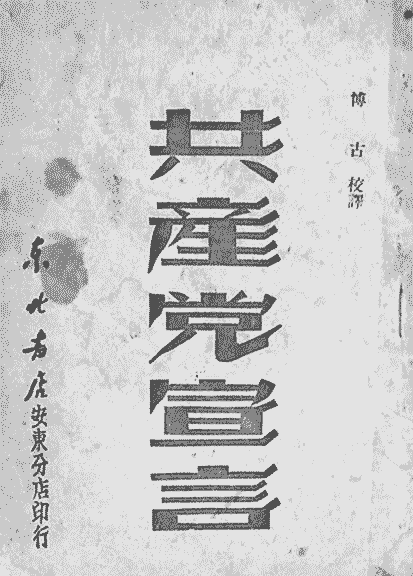 博古校譯
共產党宣言
东北书店安東分店印行